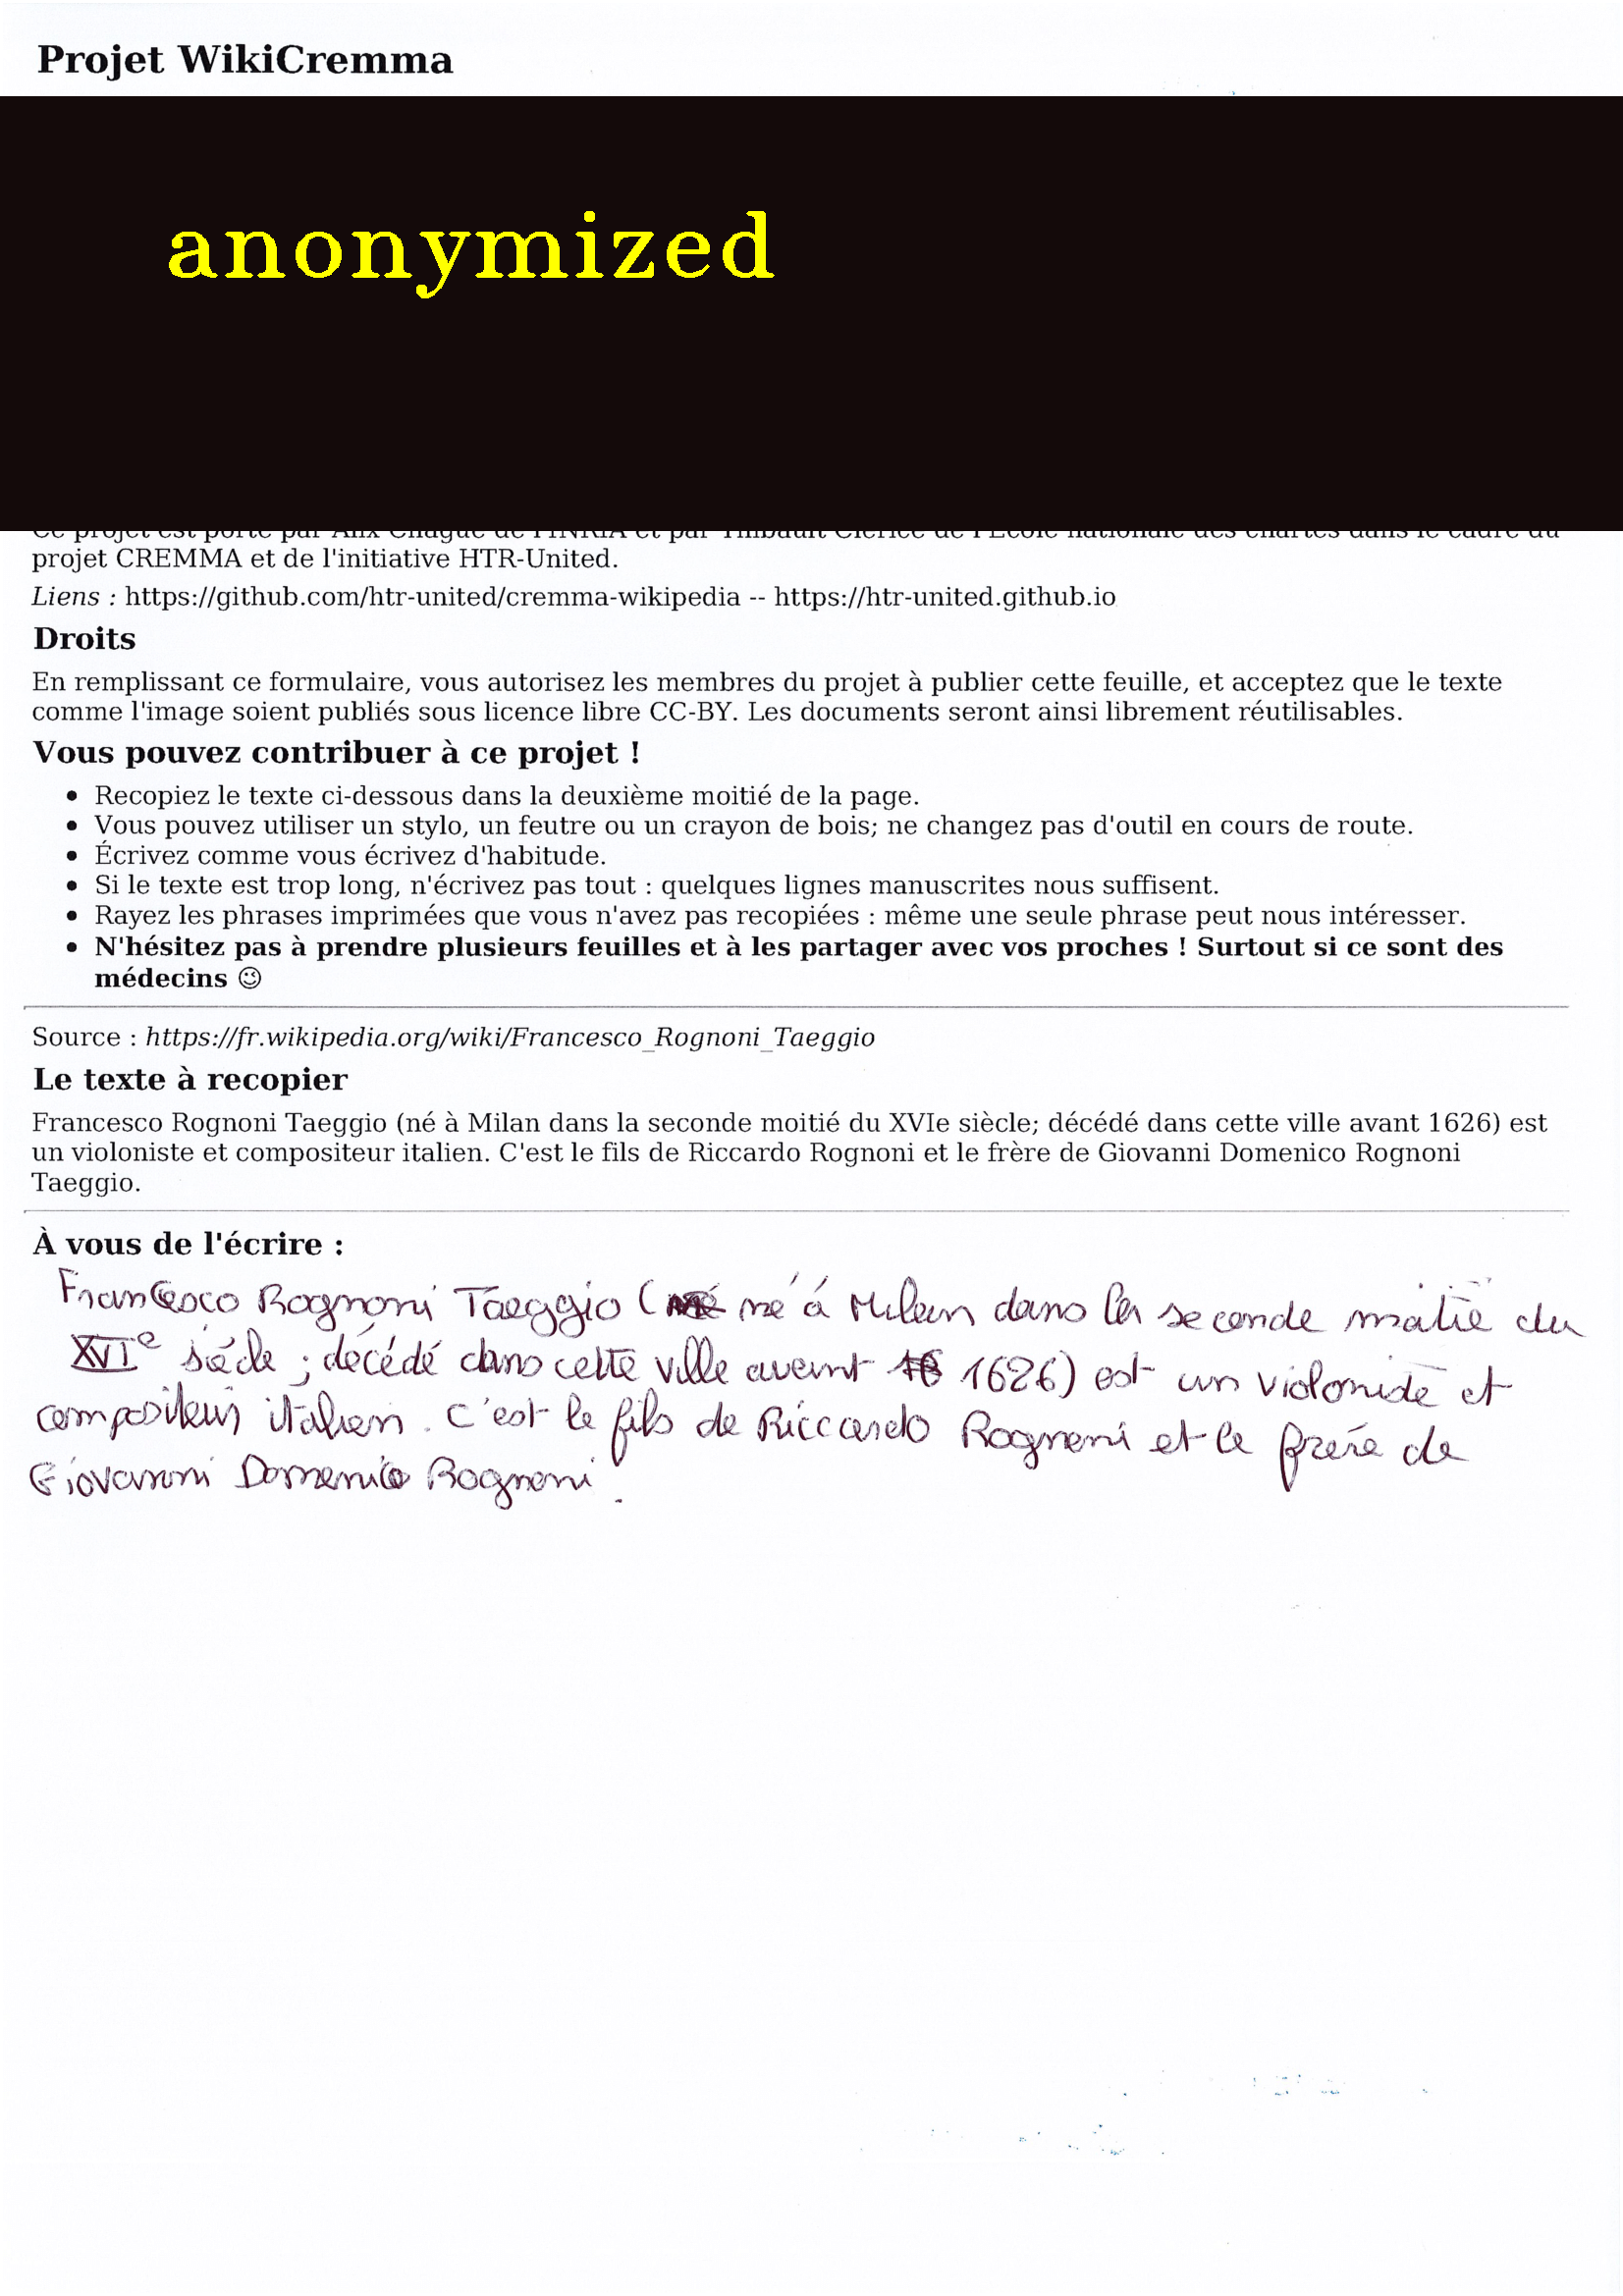 Projet WikiCremma
anonymized
Ce projet est porté par Alix Chagué de l'INRIA et par Thibault Clérice de l'École nationale des chartes dans le cadre du
projet CREMMA et de l'initiative HTR-United.
Liens : https://github.com/htr-united/cremma-wikipedia -- https://htr-united.github.io
Droits
En remplissant ce formulaire, vous autorisez les membres du projet à publier cette feuille, et acceptez que le texte
comme l'image soient publiés sous licence libre CC-BY. Les documents seront ainsi librement réutilisables.
Vous pouvez contribuer à ce projet !
• Recopiez le texte ci-dessous dans la deuxième moitié de la page.
• Vous pouvez utiliser un stylo, un feutre ou un crayon de bois; ne changez pas d'outil en cours de route.
• Écrivez comme vous écrivez d'habitude.
• Si le texte est trop long, n'écrivez pas tout : quelques lignes manuscrites nous suffisent.
• Rayez les phrases imprimées que vous n'avez pas recopiées : même une seule phrase peut nous intéresser.
• N'hésitez pas à prendre plusieurs feuilles et à les partager avec vos proches ! Surtout si ce sont des
médecins 😉
Source : https://fr.wikipedia.org/wiki/Francesco_Rognoni_Taeggio
Le texte à recopier
Francesco Rognoni Taeggio (né à Milan dans la seconde moitié du XVIe siècle; décédé dans cette ville avant 1626) est
un violoniste et compositeur italien. C'est le fils de Riccardo Rognoni et le frère de Giovanni Domenico Rognoni
Taeggio.
À vous de l'écrire :
Francesco Rognoni Taeggio (né à Milan dans la seconde moitié du
XVIe siècle ; décédé dans cette ville avant 1626) est un violoniste et
compositeur italien. C'est le fils de Riccardo Rognoni et le frère de
Giovanni Domenico Rognoni.